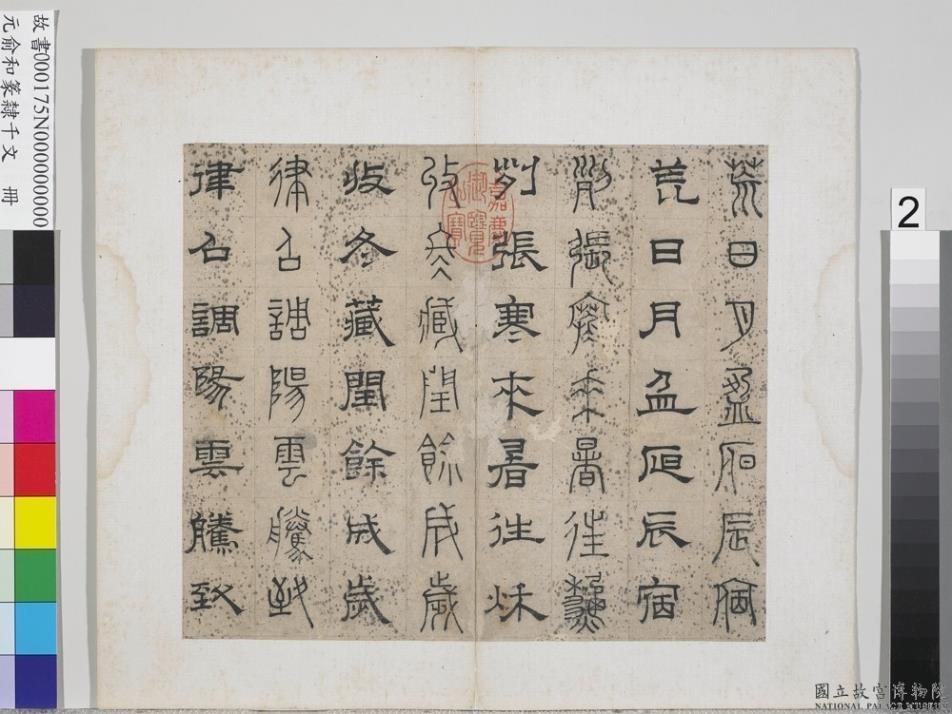 荒日月盈昃辰宿
荒日月盈昃辰宿
列張寒來暑往秋
列張寒來暑往秋
收冬藏閏餘成歲
收冬藏閏餘成歲
律召調陽雲騰致
律召調陽雲騰致
嘉慶御覽之寶
故書000175N000000000
元俞和篆隸千文 冊
2
國立故宮博物院
NATIONAL PALACE MUSEUM